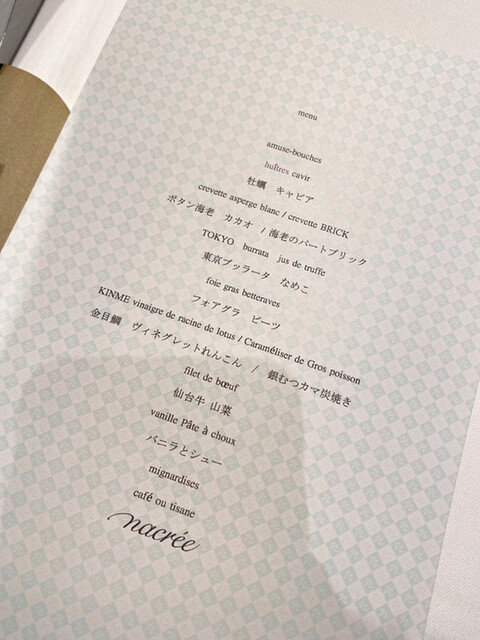 menu
amuse-bouches
huîtres cavir
牡蠣 キャビア
crevette asperge blanc / crevette BRICK
ボタン海老 カカオ / 海老のパートブリック
TOKYO burrata jus de truffe
東京ブッラータ なめこ
foie gras betteraves
フォアグラ ビーツ
KINME vinaigre de racine de lotus / Caraméliser de Gros poisson
金目鯛 ヴィネグレットれんこん / 銀むつカマ炭焼き
filet de bœuf
仙台牛 山菜
vanille Pâte à choux
バニラとシュー
mignardises
café ou tisane
nacrée